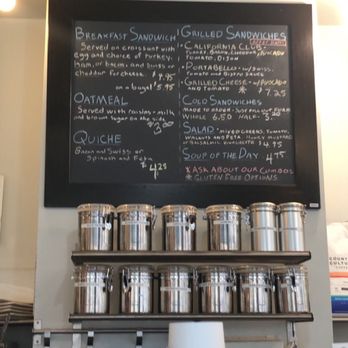 Breakfast Sandwich
Served on croissant with
egg and choice of turkey,
ham, or bacon, and swiss or
cheddar for cheese. $4.95
on a bagel $5.95
Oatmeal
Served with raisins, milk and
brown sugar on the side
$3.00
Quiche
Bacon and Swiss or
Spinach and Feta
$4.25
Grilled Sandwiches
California Club -
Turkey, Bacon, Cheddar, Avocado
Tomato, Dijon
Portabello - w/ Swiss,
Tomato and Pesto Sauce
Grilled Cheese - w/ Avocado
and Tomato * $7.25
Cold Sandwiches
Made to order - just fill out form
Whole 6.50 Half 5.20
Salad - mixed greens, tomato,
walnuts and feta, honey mustard
or balsamic vinegarette $4.95
Soup of the Day 4.75
* Ask About our Combos
* Gluten Free Options